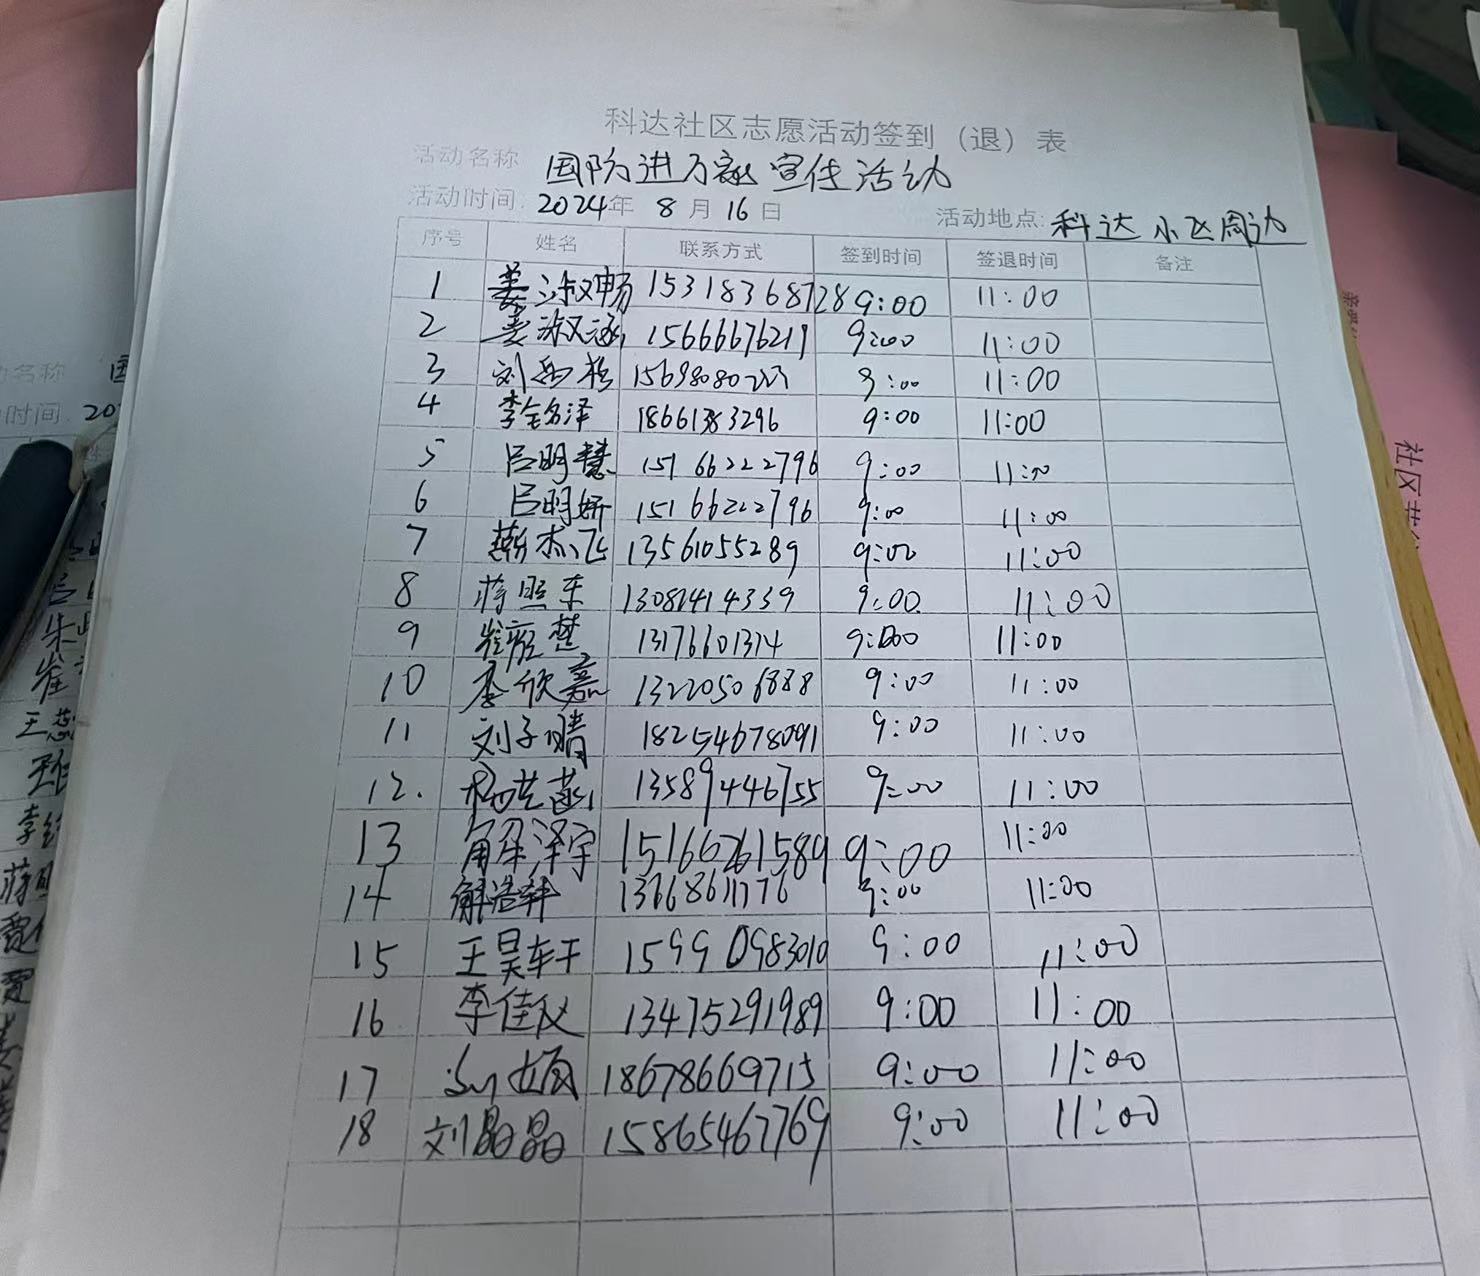 科达社区志愿活动签到（退）表
活动名称 国防进万家宣传活动
活动时间: 2024年 8月16日 活动地点: 科达小区周边
序号 姓名 联系方式 签到时间 签退时间 备注
1 姜淑畅 15318368728 9:00 11:00
2 姜淑涵 15666676217 9:00 11:00
3 刘 15698080223 9:00 11:00
4 李铭泽 18661383296 9:00 11:00
5 吕明慧 15166222796 9:00 11:00
6 吕明妍 15166222796 9:00 11:00
7 杰飞 13561055289 9:00 11:00
8 蒋照东 13082414339 9:00 11:00
9 崔楚 13176601314 9:00 11:00
10 李欣嘉 13220506888 9:00 11:00
11 刘子晴 18254678091 9:00 11:00
12. 杨芷菡 13589446755 9:00 11:00
13 解泽宇 15166261589 9:00 11:00
14 解浩轩 13668611776 9:00 11:00
15 王昊轩 15990983010 9:00 11:00
16 李佳仪 13475291989 9:00 11:00
17 18678669715 9:00 11:00
18 刘晶晶 15865467769 9:00 11:00
动名称
时间: 20
社区